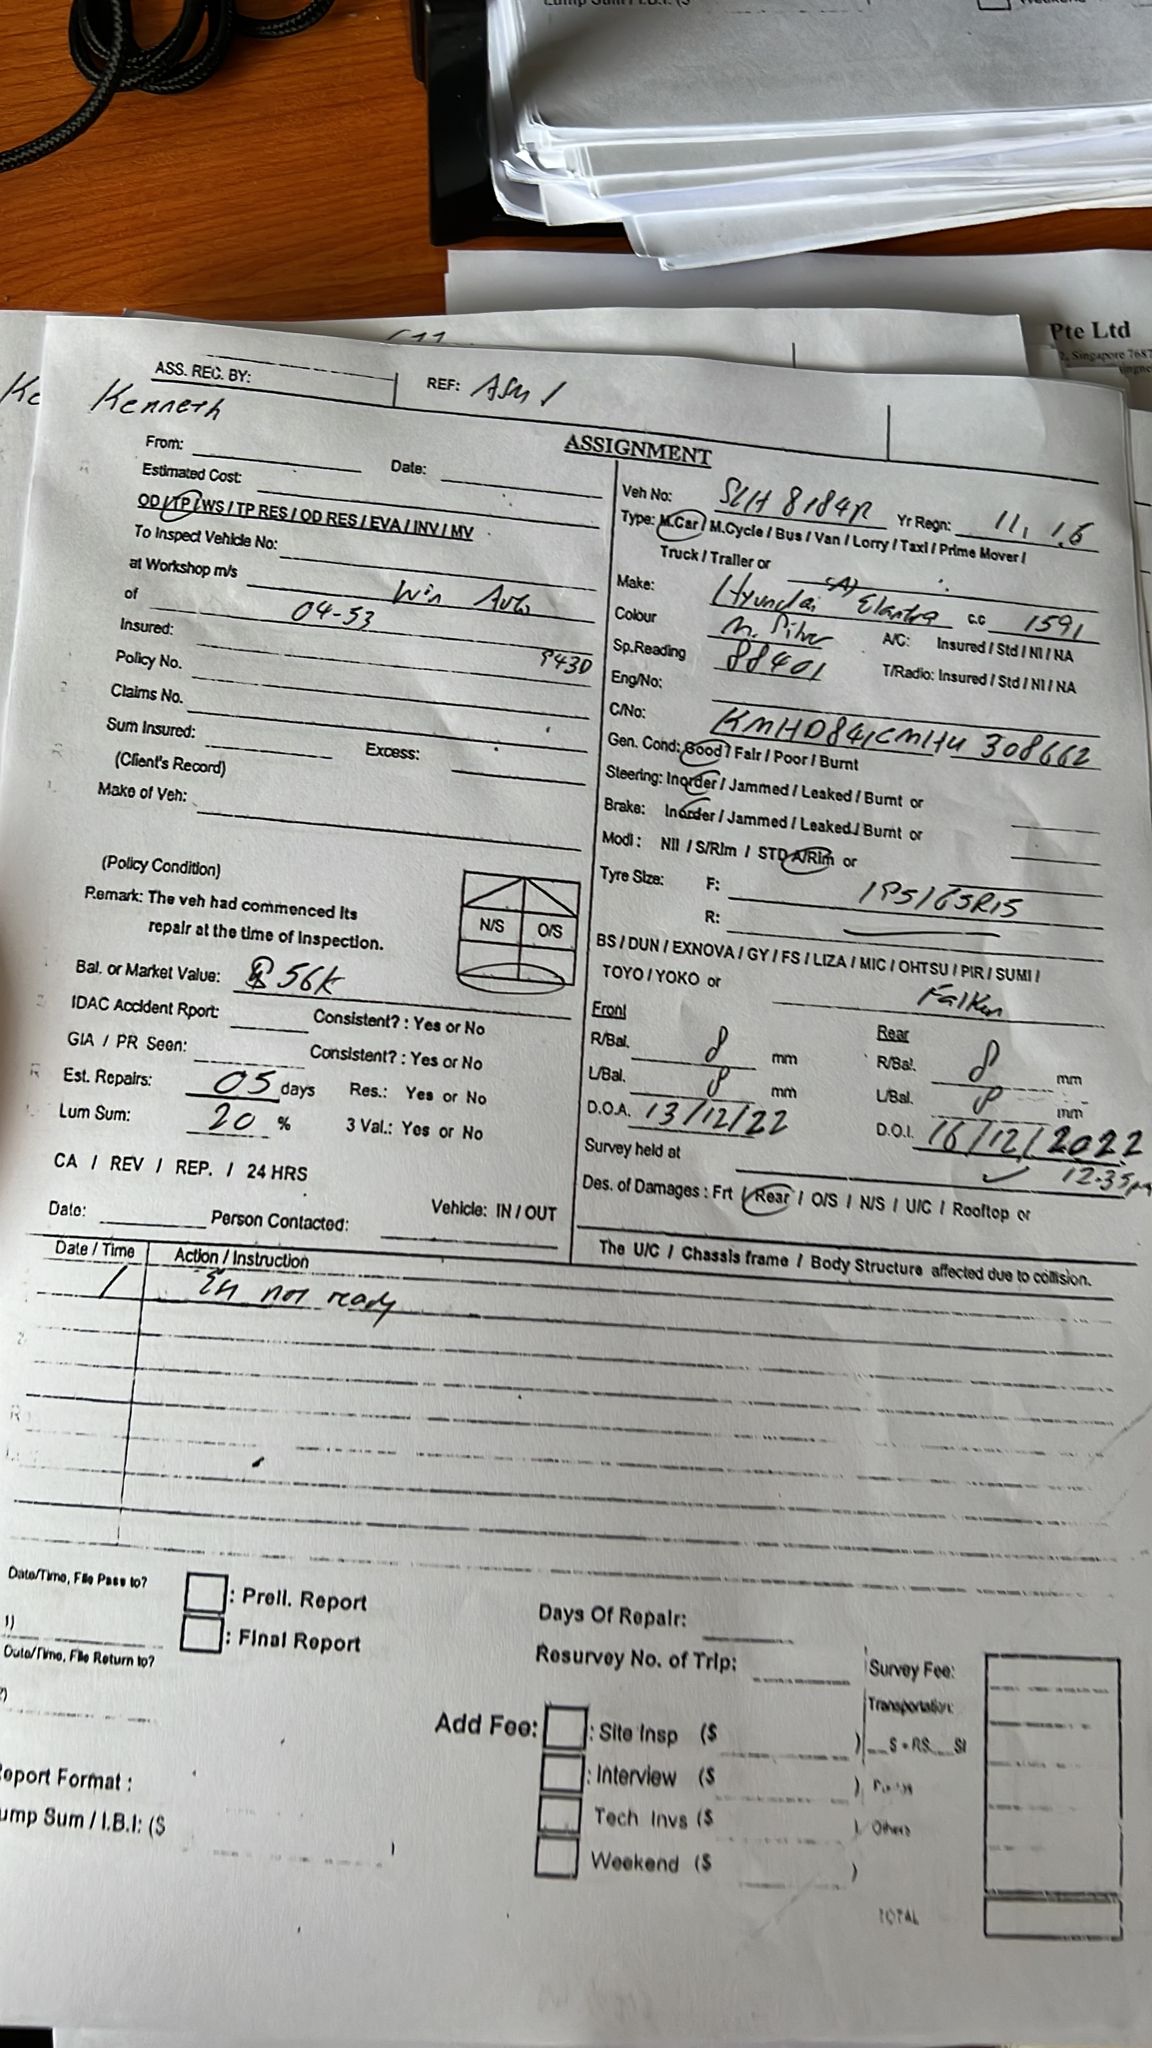 Pte Ltd
ASS. REC. BY:
Kenneth
REF:
ASSIGNMENT
From:
Date:
Estimated Cost:
OD / TP / WS / TP RES / OD RES / EVA / INV / MV
To Inspect Vehicle No:
at Workshop m/s Win Auto
of 04-53
Insured: 943D
Policy No.
Claims No.
Sum Insured: Excess:
(Client's Record)
Make of Veh:
(Policy Condition)
Remark: The veh had commenced its
repair at the time of Inspection.
N/S O/S
Bal. or Market Value: $56k
IDAC Accident Rport: Consistent? : Yes or No
GIA / PR Seen: Consistent? : Yes or No
Est. Repairs: 05 days Res.: Yes or No
Lum Sum: 20 % 3 Val.: Yes or No
CA / REV / REP. / 24 HRS
Vehicle: IN / OUT
Date: Person Contacted:
Veh No: 8184R Yr Regn: 11, 16
Type: M.Car / M.Cycle / Bus / Van / Lorry / Taxi / Prime Mover /
Truck / Trailer or
Make: Hyundai (A) Elantra c.c 1591
Colour M. Silver A/C: Insured / Std / NI / NA
Sp.Reading 88401 T/Radio: Insured / Std / NI / NA
Eng/No:
C/No: KMHD841CMHU 308662
Gen. Cond: Good / Fair / Poor / Burnt
Steering: Inorder / Jammed / Leaked / Burnt or
Brake: Inorder / Jammed / Leaked / Burnt or
Modi: Nil / S/Rim / STD A/Rim or
Tyre Size: F: 195/65R15
R:
BS / DUN / EXNOVA / GY / FS / LIZA / MIC / OHTSU / PIR / SUMI /
TOYO / YOKO or Falken
Front Rear
R/Bal. 8 mm R/Bal. 8 mm
L/Bal. 8 mm L/Bal. 8 mm
D.O.A. 13/12/22 D.O.I. 16/12/2022
Survey held at 12.35pm
Des. of Damages : Frt / Rear / O/S / N/S / U/C / Rooftop or
The U/C / Chassis frame / Body Structure affected due to collision.
Date / Time Action / Instruction
not ready
Date/Time, File Pass to?
1)
Date/Time, File Return to?
: Prell. Report
: Final Report
Days Of Repair:
Resurvey No. of Trip:
Survey Fee:
Transportation:
Add Fee: : Site Insp ($ )
: Interview ($ )
Tech Invs ($ ) Others
Weekend ($ )
Report Format :
Lump Sum / I.B.I: ($ )
TOTAL